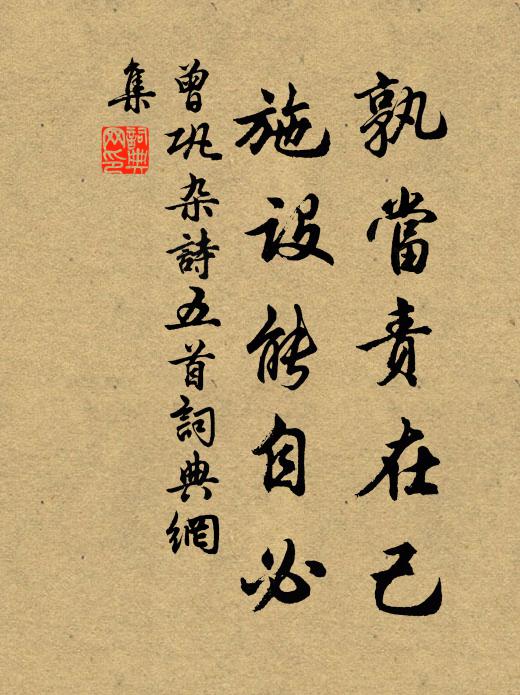 孰當責在己
施設能自必
曾巩杂詩五首詞典網
集
詞典網印